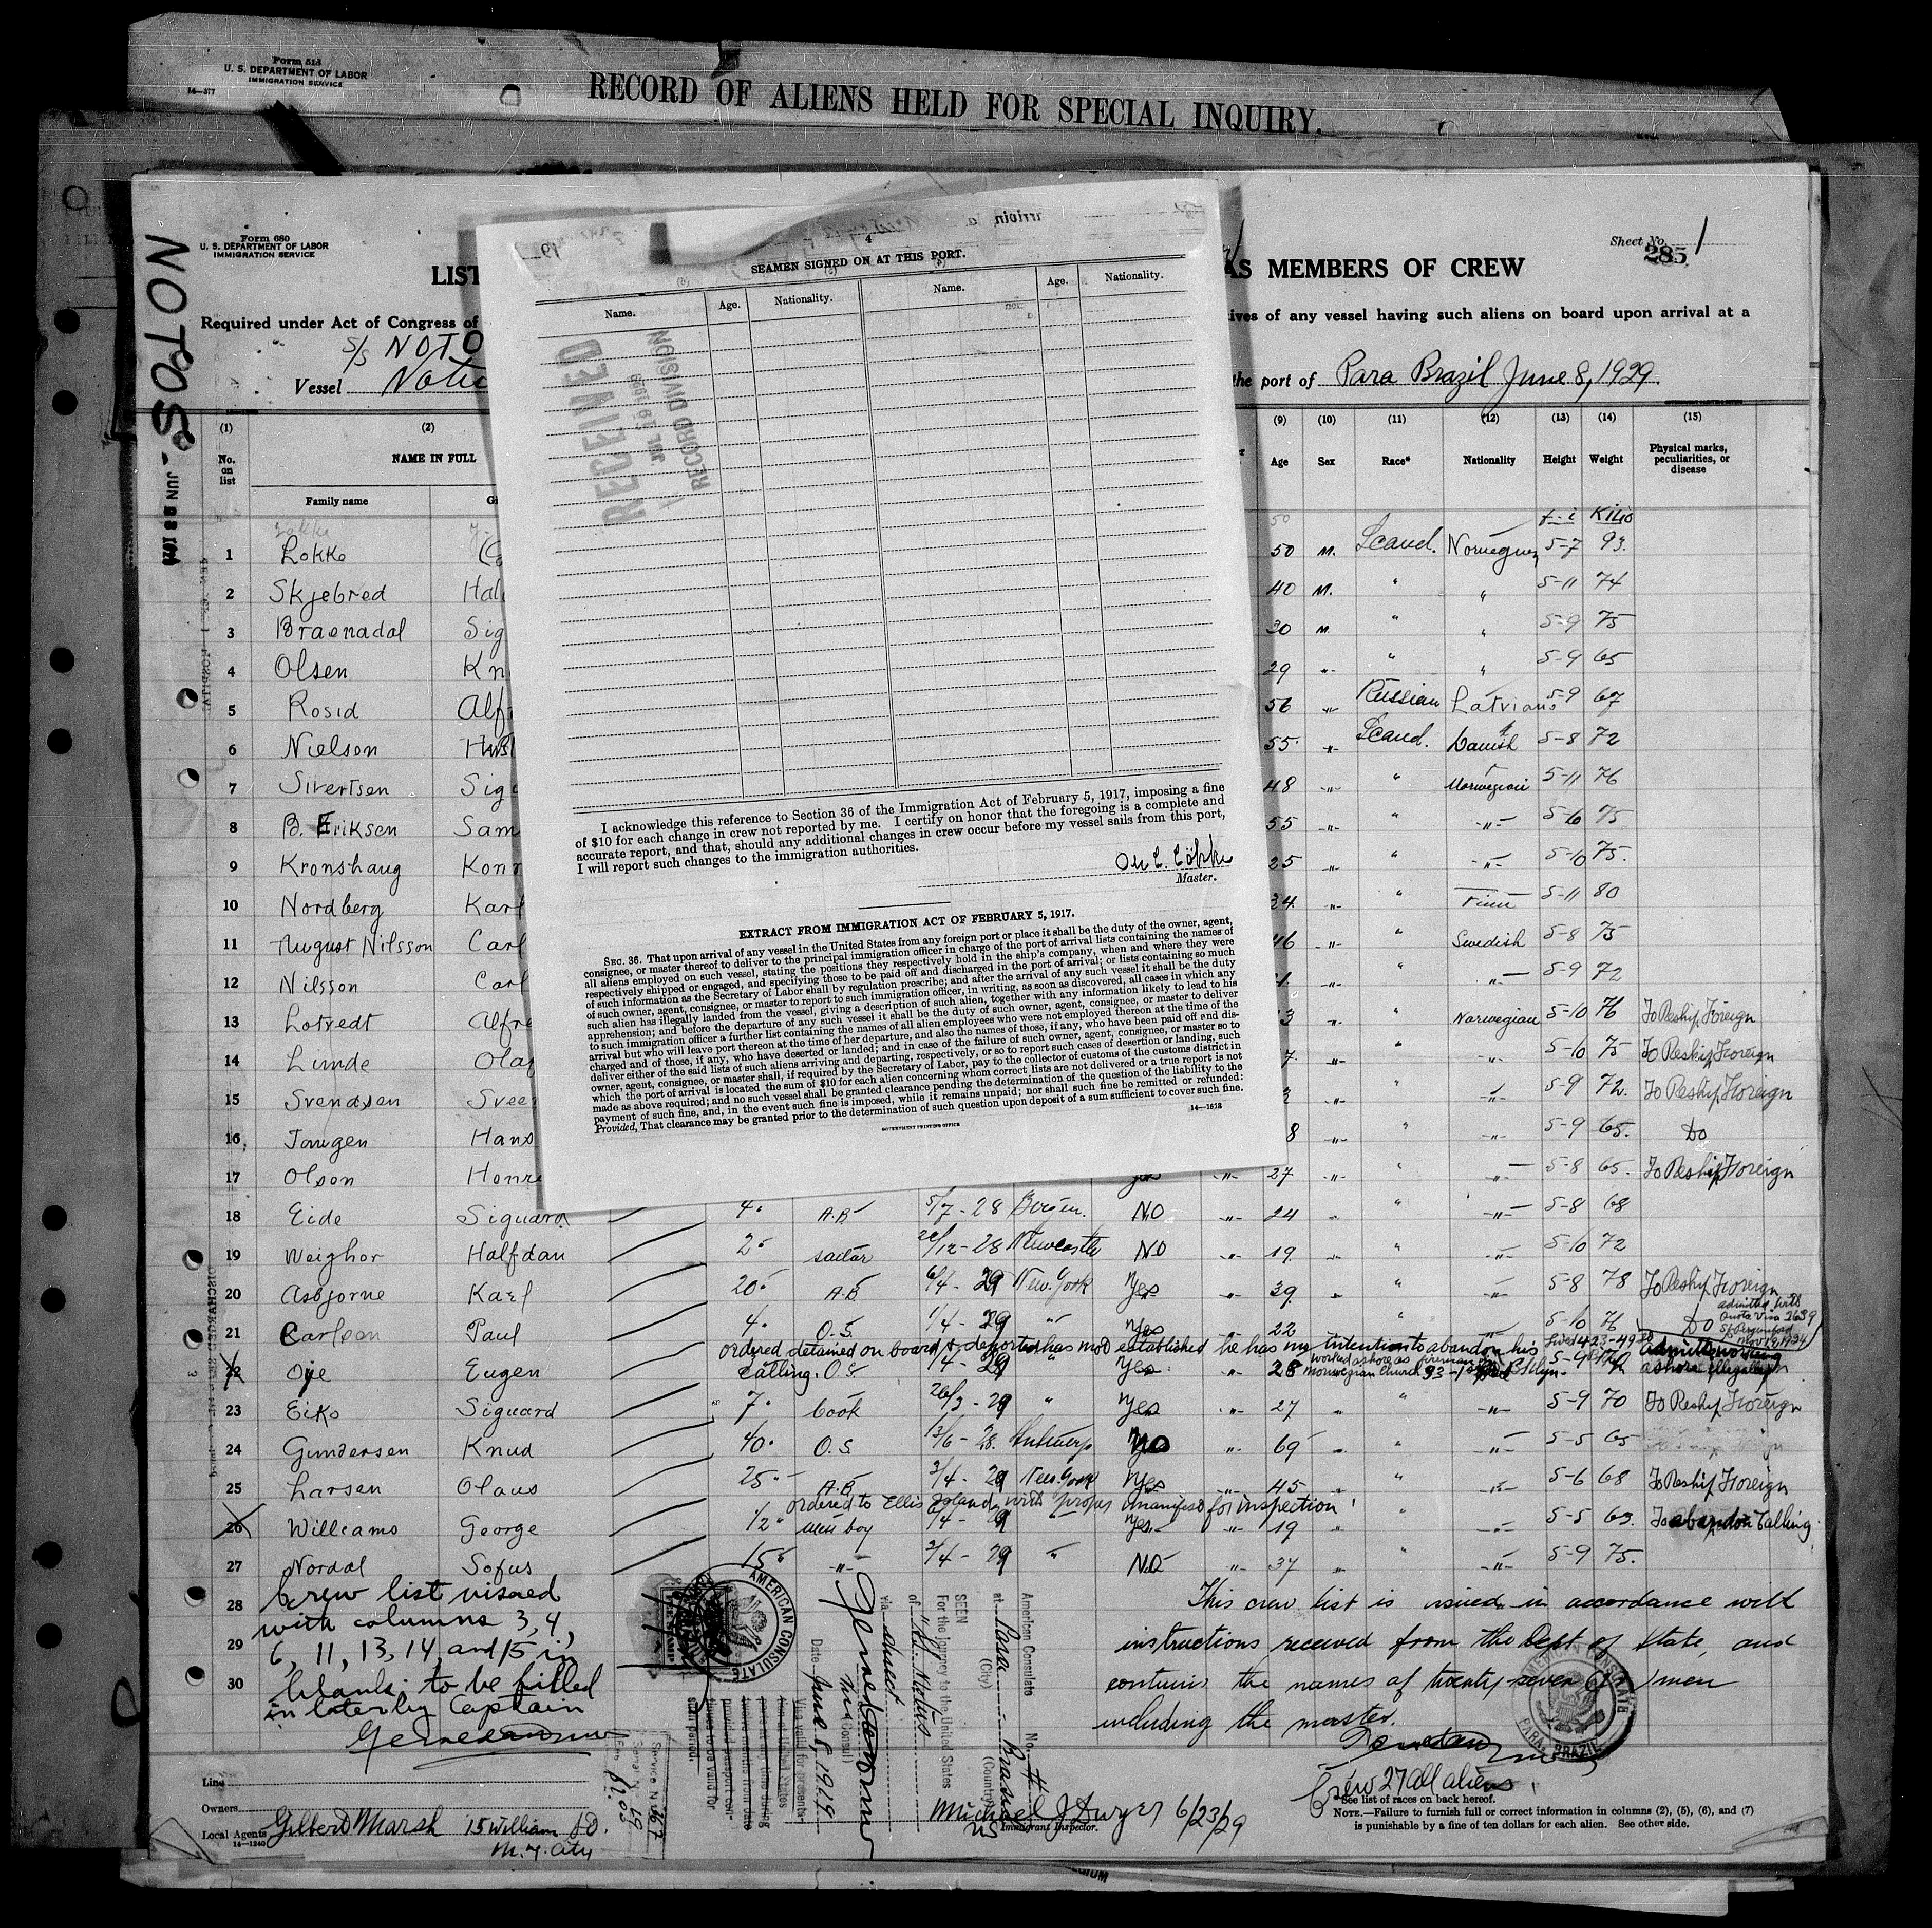 Form 513
U. S. DEPARTMENT OF LABOR
IMMIGRATION SERVICE
RECORD OF ALIENS HELD FOR SPECIAL INQUIRY.
Form 680
U. S. DEPARTMENT OF LABOR
IMMIGRATION SERVICE
Sheet No. 1
285
NOTOS
LIST
AS MEMBERS OF CREW
Required under Act of Congress of
ives of any vessel having such aliens on board upon arrival at a
S/S NOTO
Vessel
the port of Para Brazil June 8, 1929
SEAMEN SIGNED ON AT THIS PORT.
Name. Age. Nationality. Name. Age. Nationality.
RECEIVED
RECORD DIVISION
I acknowledge this reference to Section 36 of the Immigration Act of February 5, 1917, imposing a fine
of $10 for each change in crew not reported by me. I certify on honor that the foregoing is a complete and
accurate report, and that, should any additional changes in crew occur before my vessel sails from this port,
I will report such changes to the immigration authorities.
Master.
EXTRACT FROM IMMIGRATION ACT OF FEBRUARY 5, 1917.
SEC. 36. That upon arrival of any vessel in the United States from any foreign port or place it shall be the duty of the owner, agent,
consignee, or master thereof to deliver to the principal immigration officer in charge of the port of arrival lists containing the names of
all aliens employed on such vessel, stating the positions they respectively hold in the ship's company, when and where they were
respectively shipped or engaged, and specifying those to be paid off and discharged in the port of arrival; or lists containing so much
of such information as the Secretary of Labor shall by regulation prescribe; and after the arrival of any such vessel it shall be the duty
of such owner, agent, consignee, or master to report to such immigration officer, in writing, as soon as discovered, all cases in which any
such alien has illegally landed from the vessel, giving a description of such alien, together with any information likely to lead to his
apprehension; and before the departure of any such vessel it shall be the duty of such owner, agent, consignee, or master to deliver
to such immigration officer a further list containing the names of all alien employees who were not employed thereon at the time of the
arrival but who will leave port thereon at the time of her departure, and also the names of those, if any, who have been paid off and dis-
charged and of those, if any, who have deserted or landed; and in case of the failure of such owner, agent, consignee, or master so to
deliver either of the said lists of such aliens arriving and departing, respectively, or so to report such cases of desertion or landing, such
owner, agent, consignee, or master shall, if required by the Secretary of Labor, pay to the collector of customs of the customs district in
which the port of arrival is located the sum of $10 for each alien concerning whom correct lists are not delivered or a true report is not
made as above required; and no such vessel shall be granted clearance pending the determination of the question of the liability to the
payment of such fine, and, in the event such fine is imposed, while it remains unpaid; nor shall such fine be remitted or refunded:
Provided, That clearance may be granted prior to the determination of such question upon deposit of a sum sufficient to cover such fine.
14—1618
GOVERNMENT PRINTING OFFICE
(1) (2) (9) (10) (11) (12) (13) (14) (15)
No. on list NAME IN FULL Age Sex Race* Nationality Height Weight Physical marks, peculiarities, or disease
Family name
f-i Kilo
1 Lokke 50 M. Scand. Norwegian 5-7 93.
2 Skjebred Hal 40 M. " " 5-11 74
3 Braenadal Sig 30 M " " 5-9 75
4 Olsen Kn 29 " " " 5-9 65
5 Rosid Alf 56 " Russian Latvian 5-9 67
6 Nielson 55 " Scand. Danish 5-8 72
7 Sivertsen Sig 48 " " Norwegian 5-11 76
8 B. Eriksen Sam 55 " " " 5-6 75
9 Kronshaug Kon 25 " " " 5-10 75.
10 Nordberg Karl 24 " " Finn 5-11 80
11 August Nilsson Carl 46 " " Swedish 5-8 75
12 Nilsson Carl " " 5-9 72
13 Lotvedt Alfre 3 " " Norwegian 5-10 76 To Reship Foreign
14 Lunde Olaf 7. " " " 5-10 75 To Reship Foreign
15 Svendsen Svee " " " 5-9 72. To Reship Foreign
16 Hans 8 " " " 5-9 65. Do
17 Olsen Henr yes " 27 " " " 5-8 65. To Reship Foreign
18 Eide Siguard 4" A.B 5/7-28 Bergen. NO " 24 " " " 5-8 68
19 Weighor Halfdan 2" sailor 22/12-28 Newcastle NO " 19. " " " 5-10 72
20 Asbjorne Karl 20" A.B. 6/4-29 New York Yes " 39. " " " 5-8 78 To Reship Foreign
21 Carlson Paul 4" O.S. 1/4-29 " Yes " 22 " " 5-10 76 Do
admitted with Quota Visa 2639
ordered detained on board & deported has not established he has no intention to abandon his
calling.
22 Oye Eugen O.S. 1/4-29 " Yes " 28 5-9
Norwegian Church
23 Eiko Siguard 7" Cook 26/3-29 " Yes " 27 " " " 5-9 70 To Reship Foreign
24 Gundersen Knud 40" O.S 13/6-28. Antwerp No " 69 " " " 5-5 65
25 Larsen Olaus 25" A.B 3/4-29 New York Yes " 45 " " " 5-6 68 To Reship Foreign
ordered to Ellis Island with proper manifest for inspection
26 Williams George 1/2" mess boy 6/4-29 " Yes " 19 " " 5-5 63. To abandon Calling
27 Nordal Sofus 15" " 3/4-29 " NO " 37 " " " 5-9 75.
28
29
30
Crew list visaed
with columns 3, 4,
6, 11, 13, 14, and 15 in
blank: to be filled
in later by Captain
AMERICAN CONSULATE
Date June 8, 1929
American Consulate No.
at Para Brazil
(City) (Country)
SEEN
For the journey to the United States
of
via direct
This crew list is visaed in accordance with
instructions received from the Dept of State, and
contains the names of twenty-seven (27) men
including the master.
AMERICAN CONSULATE PARA, BRAZIL
Crew 27 all aliens
Line
Owners
Local Agents Gilbert Marsh 15 William St.
N.Y. City
14—1240
Michael J Dwyer 6/23/29
Immigrant Inspector.
*See list of races on back hereof.
NOTE.—Failure to furnish full or correct information in columns (2), (5), (6), and (7)
is punishable by a fine of ten dollars for each alien. See other side.